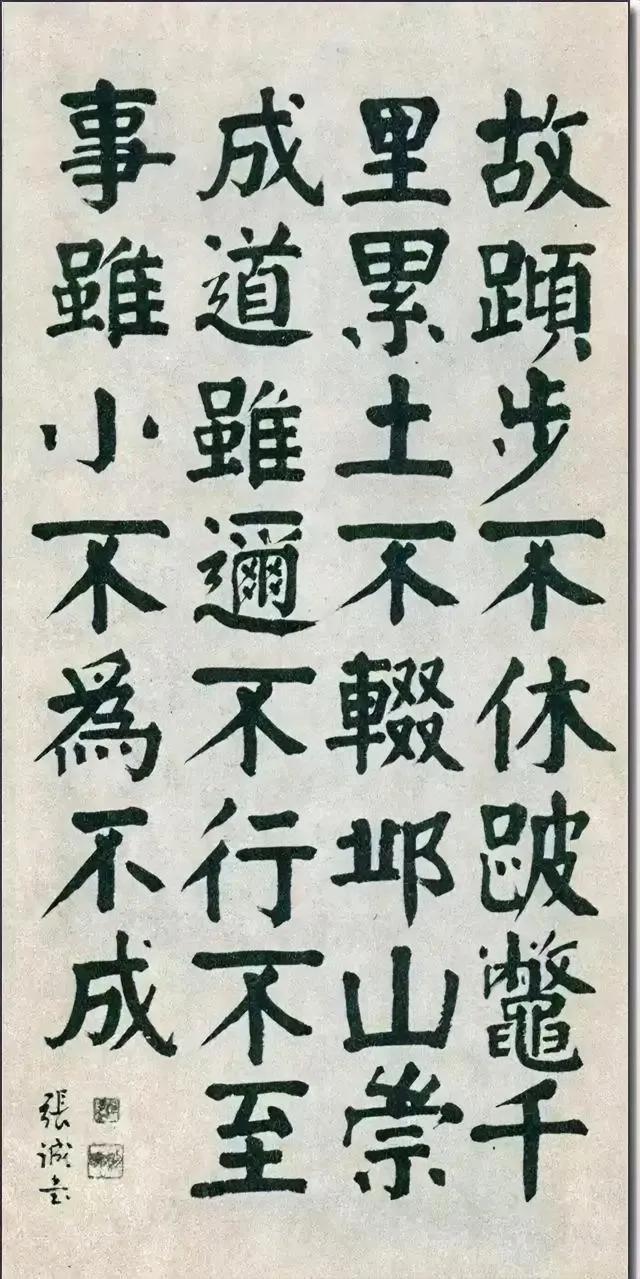 故蹞步不休跛鼈千
里累土不輟邱山崇
成道雖邇不行不至
事雖小不爲不成
張誠書